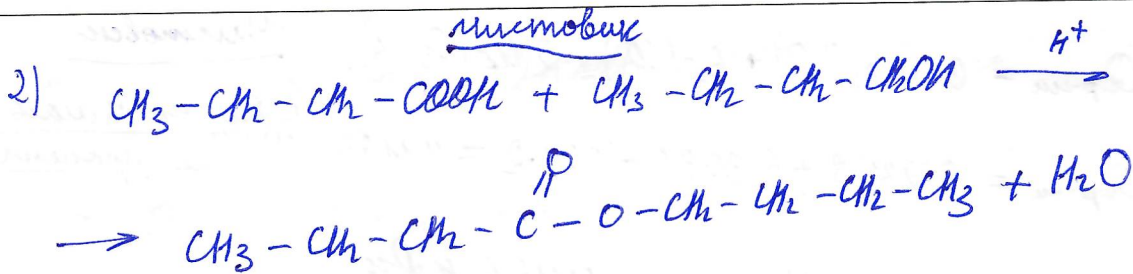 чистовик
2) CH₃ – CH₂ – CH₂ – COOH + CH₃ – CH₂ – CH₂ – CH₂OH H⁺ →
O
→ CH₃ – CH₂ – CH₂ – C – O – CH₂ – CH₂ – CH₂ – CH₃ + H₂O